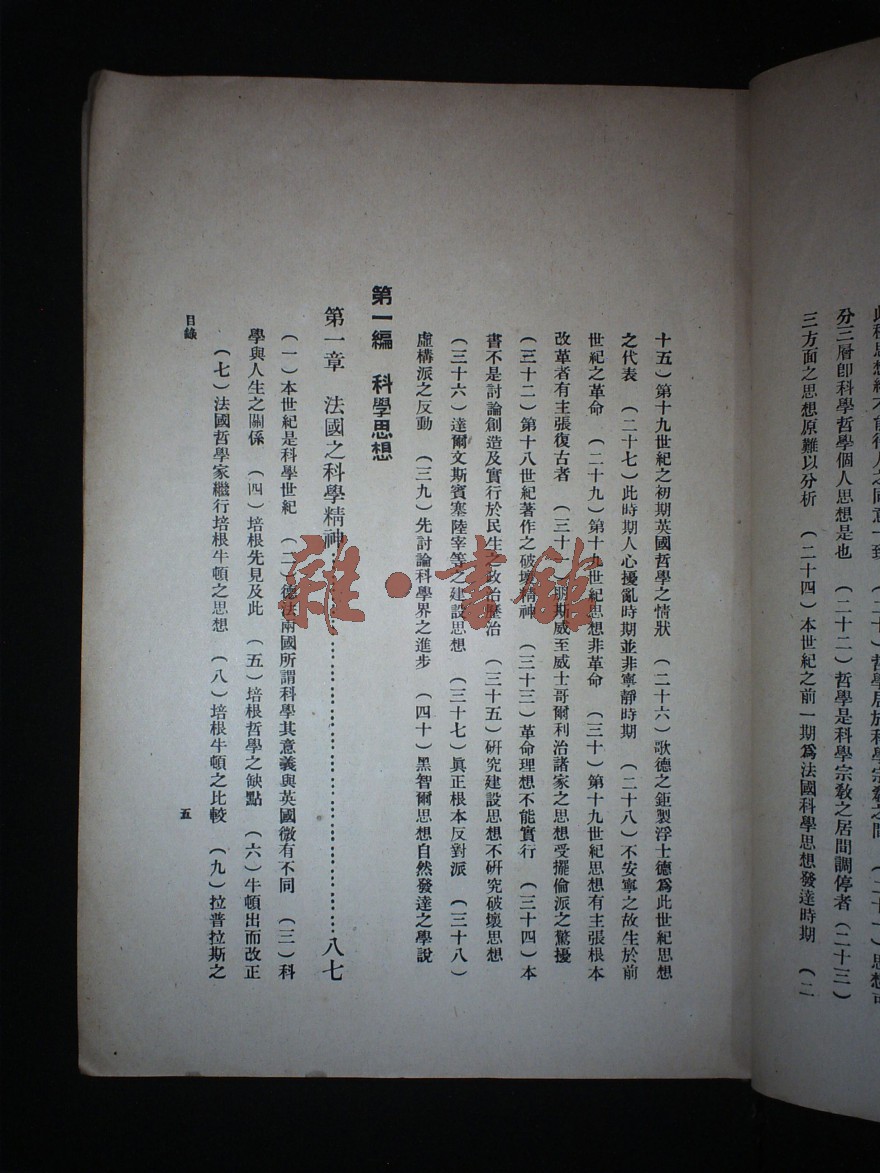 分三層卽科學哲學個人思想是也　（二十二）哲學是科學宗教之居間調停者（二十三）
三方面之思想原難以分析　（二十四）本世紀之前一期爲法國科學思想發達時期　（二
十五）第十九世紀之初期英國哲學之情狀　（二十六）歌德之鉅製浮士德爲此世紀思想
之代表　（二十七）此時期人心擾亂時期並非寧靜時期　（二十八）不安寧之故生於前
世紀之革命　（二十九）第十九世紀思想非革命　（三十）第十九世紀思想有主張根本
改革者有主張復古者　（三十一）朋斯威至威士哥爾利治諸家之思想受擺倫派之驚擾
（三十二）第十八世紀著作之破壞精神　（三十三）革命理想不能實行　（三十四）本
書不是討論創造及實行於民生之政治歷治　（三十五）硏究建設思想不硏究破壞思想
（三十六）達爾文斯賓塞陸宰等之建設思想　（三十七）眞正根本反對派　（三十八）
虛構派之反動　（三九）先討論科學界之進步　（四十）黑智爾思想自然發達之學說
第一編　科學思想
第一章　法國之科學精神……………………八七
（一）本世紀是科學世紀　（二）德法兩國所謂科學其意義與英國微有不同　（三）科
學與人生之關係　（四）培根先見及此　（五）培根哲學之缺點　（六）牛頓出而改正
（七）法國哲學家繼行培根牛頓之思想　（八）培根牛頓之比較　（九）拉普拉斯之
目錄　五
雜·書館